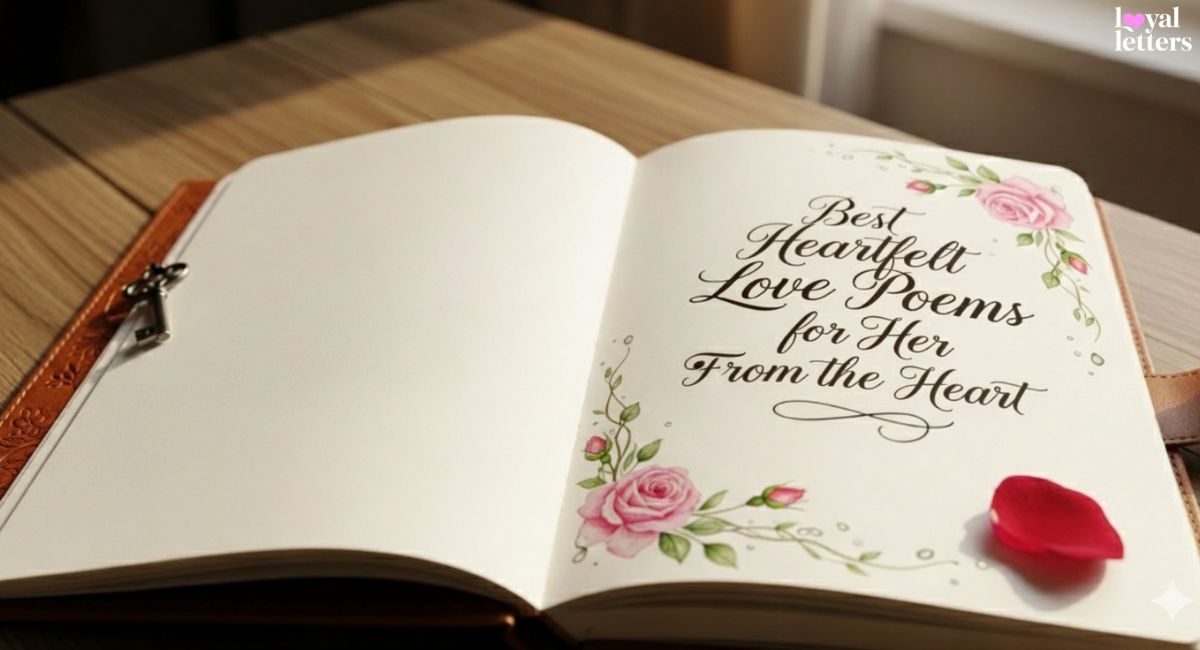 loyal
letters
Best
Heartfelt
Love Poems
for Her
From the Heart